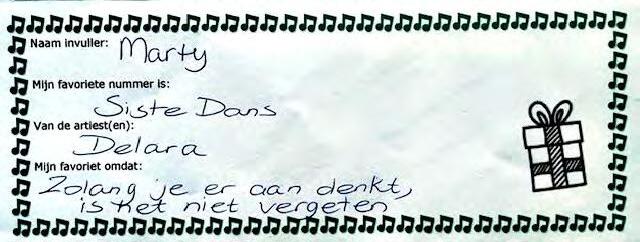 Naam invuller: Marty
Mijn favoriete nummer is:
Siste Dans
Van de artiest(en):
Delara
Mijn favoriet omdat:
Zolang je er aan denkt,
is het niet vergeten